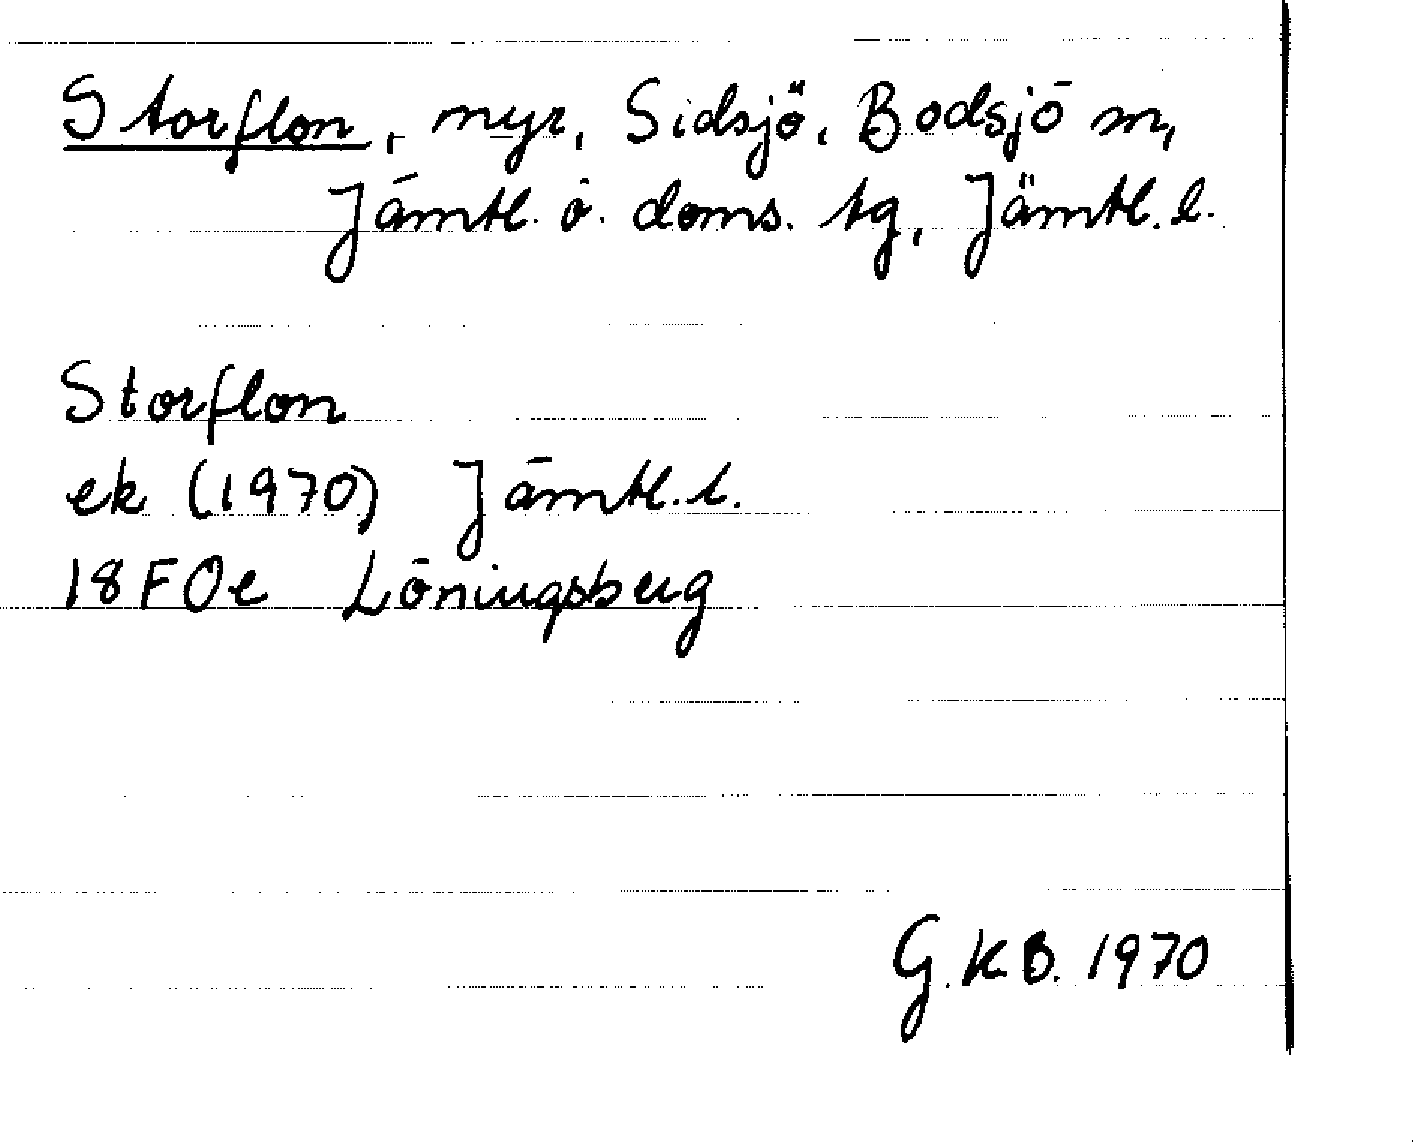 Storflon, myr, Sidsjö, Bodsjö sn,
Jämtl. ö. doms. tg, Jämtl. l.
Storflon
ek (1970) Jämtl. l.
18F0e Löningsberg
G.K B. 1970